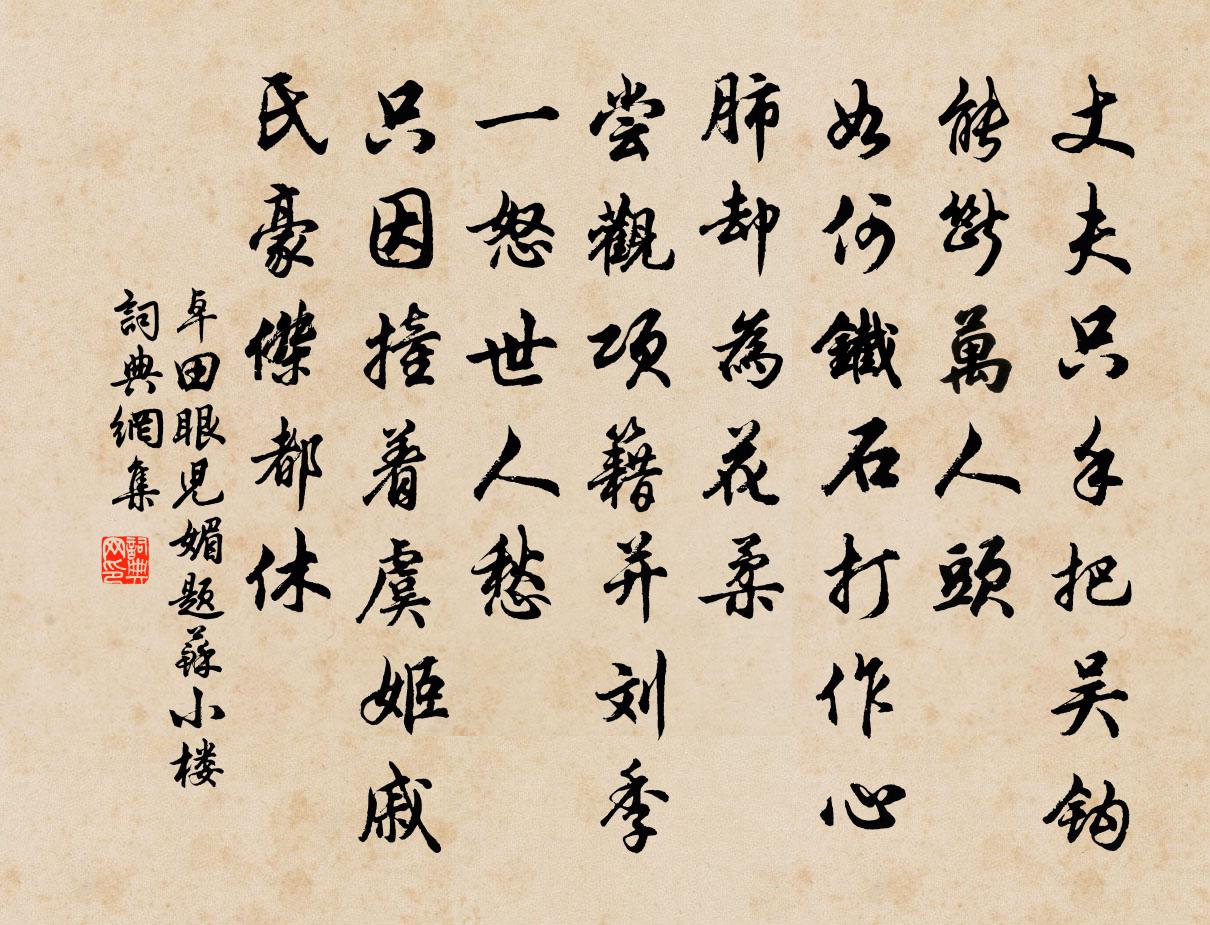 丈夫只手把吴鈎
能斷萬人頭
如何鐵石打作心
肺却為花柔
尝觀项籍并刘季
一怒世人愁
只因撞着虞姬戚
氏豪傑都休
卓田眼児媚题蘇小楼
詞典網集
詞典
网印